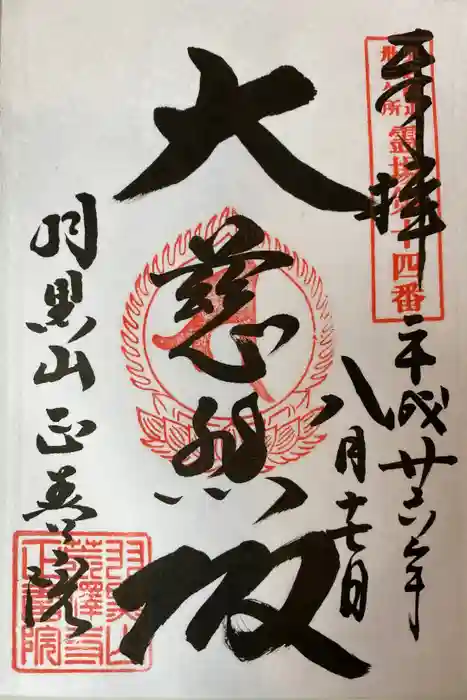 奉拝
平成廿六年
八月十七日
大慈殿
羽黒山正善院
霊場第十四番
羽黒山
荒澤寺
正善院